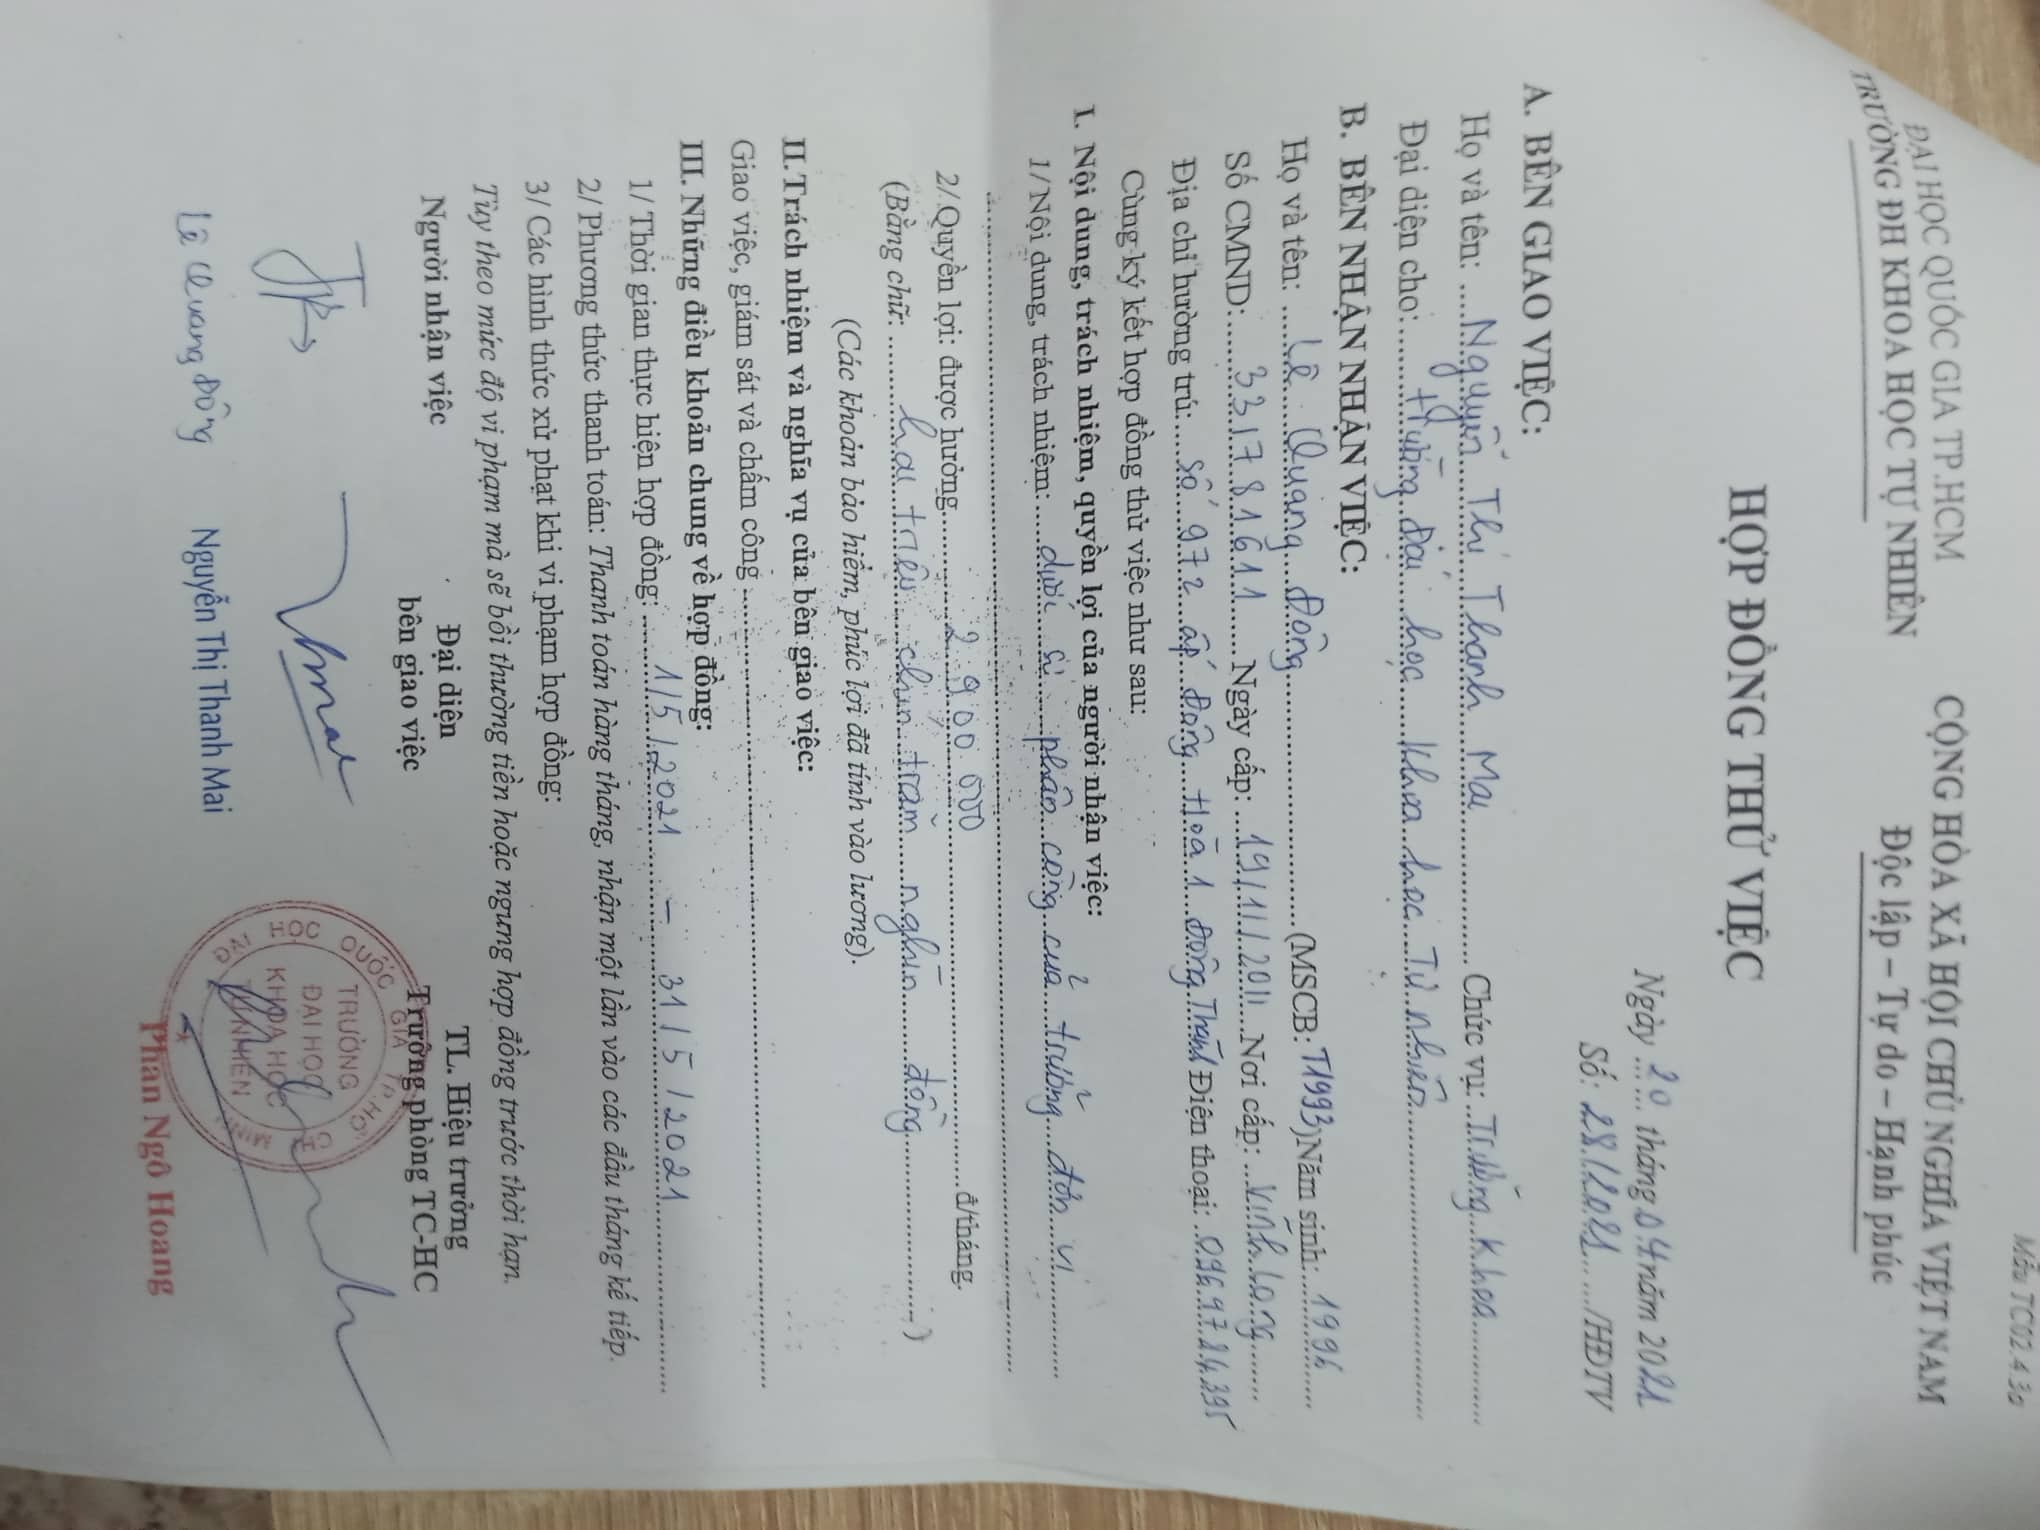 Mẫu TC02.4.3a
ĐẠI HỌC QUỐC GIA TP.HCM
TRƯỜNG ĐH KHOA HỌC TỰ NHIÊN
CỘNG HÒA XÃ HỘI CHỦ NGHĨA VIỆT NAM
Độc lập – Tự do – Hạnh phúc
Ngày 20 tháng 04 năm 2021
Số: 28/2021/HĐTV
HỢP ĐỒNG THỬ VIỆC
A. BÊN GIAO VIỆC:
Họ và tên: Nguyễn Thị Thanh Mai Chức vụ: Trưởng Khoa
Đại diện cho: trường Đại học Khoa học Tự nhiên
B. BÊN NHẬN NHẬN VIỆC:
Họ và tên: Lê Quang Đông (MSCB: T1993) Năm sinh: 1996
Số CMND: 331781611 Ngày cấp: 19/11/2011 Nơi cấp: Vĩnh Long
Địa chỉ hường trú: số 972 ấp Đông Hoà 1 Đông Thành Điện thoại: 0969724395
Cùng ký kết hợp đồng thử việc như sau:
I. Nội dung, trách nhiệm, quyền lợi của người nhận việc:
1/ Nội dung, trách nhiệm: dưới sự phân công của trưởng đơn vị
2/ Quyền lợi: được hưởng 2.900.000 đ/tháng.
(Bằng chữ: hai triệu chín trăm nghìn đồng)
(Các khoản bảo hiểm, phúc lợi đã tính vào lương).
II. Trách nhiệm và nghĩa vụ của bên giao việc:
Giao việc, giám sát và chấm công
III. Những điều khoản chung về hợp đồng:
1/ Thời gian thực hiện hợp đồng: 1/5/2021 – 31/5/2021
2/ Phương thức thanh toán: Thanh toán hàng tháng, nhận một lần vào các đầu tháng kế tiếp.
3/ Các hình thức xử phạt khi vi phạm hợp đồng:
Tùy theo mức độ vi phạm mà sẽ bồi thường tiền hoặc ngưng hợp đồng trước thời hạn.
Người nhận việc
Đại diện
bên giao việc
TL. Hiệu trưởng
Trưởng phòng TC-HC
ĐẠI HỌC QUỐC GIA TP.HỒ CHÍ MINH
TRƯỜNG
ĐẠI HỌC
KHOA HỌC
TỰ NHIÊN
Lê Quang Đông
Nguyễn Thị Thanh Mai
Phan Ngô Hoang